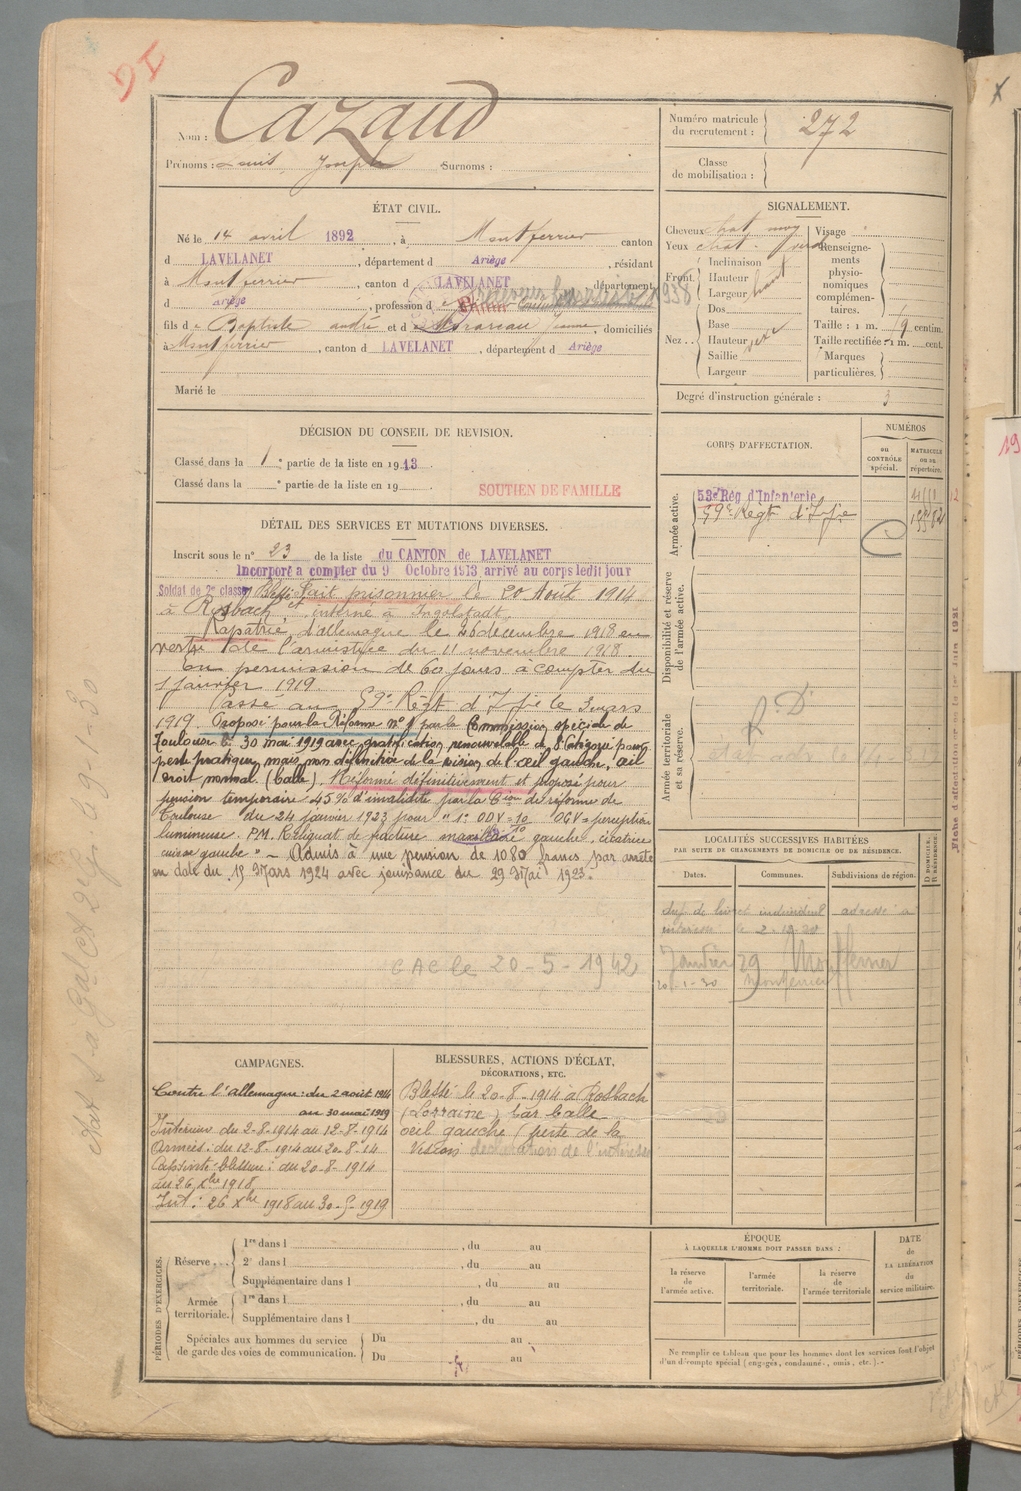 Nom : Cazaud
Prénoms : Louis Joseph Surnoms :
Numéro matricule du recrutement : 272
Classe de mobilisation :
ÉTAT CIVIL.
Né le 14 avril 1892, à Montferrier canton
d LAVELANET, département d Ariège, résidant
à Montferrier, canton d LAVELANET département
d Ariège, profession d 1938
fils de Baptiste andré et d jeanne, domiciliés
à Montferrier, canton d LAVELANET, département d Ariège
Marié le
SIGNALEMENT.
Cheveux chat Visage
Yeux chat.
Renseignements physionomiques complémentaires.
Front
Inclinaison
Hauteur
Largeur haut
Nez
Dos
Base
Hauteur
Saillie
Largeur
Taille : 1 m. centim.
Taille rectifiée : 1 m. cent.
Marques particulières.
Degré d'instruction générale : 3
DÉCISION DU CONSEIL DE REVISION.
Classé dans la 1e partie de la liste en 1913.
Classé dans la e partie de la liste en 19
SOUTIEN DE FAMILLE
DÉTAIL DES SERVICES ET MUTATIONS DIVERSES.
Inscrit sous le n° 23 de la liste du CANTON de LAVELANET
Incorporé à compter du 9 Octobre 1913 arrivé au corps ledit jour
Soldat de 2e classe Blessé Fait prisonnier le 20 Août 1914
à Rosbach et interné à Ingolstadt
Rapatrié d'allemagne le 26 decembre 1918 en
vertu de l'armistice du 11 novembre 1918.
en permission de 60 jours à compter du
1 janvier 1919.
Passé au 59e Régt d'Infie le 3 mars
1919. Proposé pour la Réforme n° 1 par la Commission spéciale de
Toulouse le 30 mai 1919 avec gratification renouvelable de 8e Catégorie pour
perte pratique, mais non définitive de la vision de l'œil gauche, œil
droit normal (balle). Réformé définitivement et proposé pour
pension temporaire 45% d'invalidité par la Cion de réforme de
Toulouse du 24 janvier 1923 pour "1° ODV = 10 OGV = perception
lumineuse. P.M. Reliquat de fracture gauche, cicatrice
cuisse gauche" - Admis à une pension de 1080 francs par arrêté
en date du 19 Mars 1924 avec jouissance du 29 Mai 1923.
CAC le 20-5-1942
CORPS D'AFFECTATION.
NUMÉROS
au CONTRÔLE spécial.
MATRICULE ou au répertoire.
Armée active.
53e Rég d'Infanterie
59e Régt d'Infie
Disponibilité et réserve de l'armée active.
Armée territoriale et sa réserve.
R.D
LOCALITÉS SUCCESSIVES HABITÉES
PAR SUITE DE CHANGEMENTS DE DOMICILE OU DE RÉSIDENCE.
Dates. Communes. Subdivisions de région. D DOMICILE. R RÉSIDENCE.
dup. de livret individuel adressé à
29 Montferrier
20-1-30 Montferrier
CAMPAGNES.
Contre l'Allemagne : du 2 août 1914
au 30 mai 1919
Intérieur du 2-8-1914 au 12-8-1914
Armées : du 12-8-1914 au 20-8-14
Captivité blessure : du 20-8-1914
au 26 Xbre 1918
Int : 26 Xbre 1918 au 30-5-1919
BLESSURES, ACTIONS D'ÉCLAT,
DÉCORATIONS, ETC.
Blessé le 20-8-1914 à Rosbach
(Lorraine) par balle
œil gauche (perte de la
vision déclaration de l'intéressé
PÉRIODES D'EXERCICES.
Réserve
1re dans l , du au
2e dans l , du au
Supplémentaire dans l , du au
Armée territoriale.
1re dans l , du au
Supplémentaire dans l , du au
Spéciales aux hommes du service de garde des voies de communication.
Du au
Du au
ÉPOQUE
À LAQUELLE L'HOMME DOIT PASSER DANS :
la réserve de l'armée active.
l'armée territoriale.
la réserve de l'armée territoriale
DATE de LA LIBÉRATION du service militaire.
Ne remplir ce tableau que pour les hommes dont les services font l'objet
d'un décompte spécial (engagés, condamnés, omis, etc.).